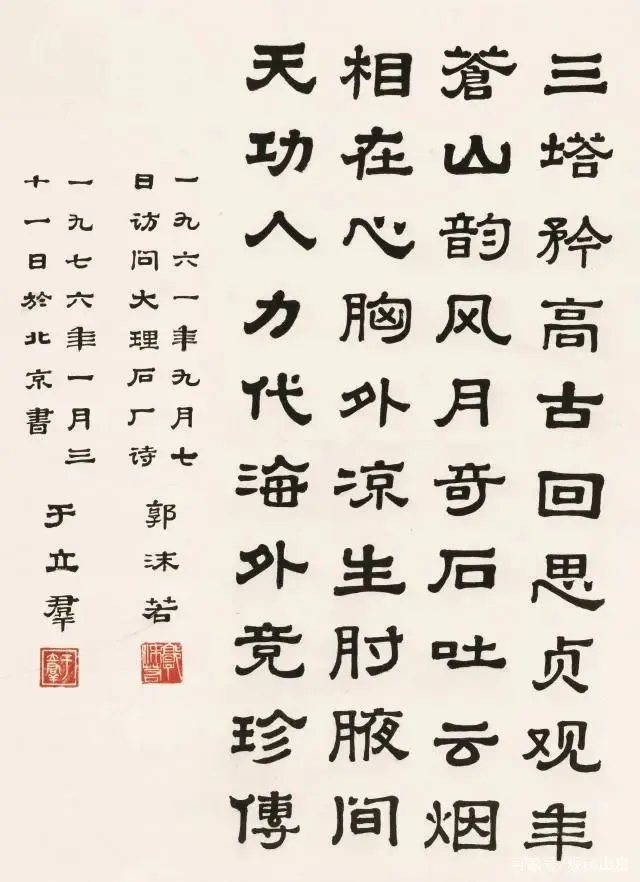 三塔矜高古回思贞观年
蒼山韵风月奇石吐云烟
相在心胸外凉生肘腋间
天功人力代海外竞珍傳
一九六一年九月七
日访问大理石厂诗
郭沫若
一九七六年一月三
十一日於北京書
于立羣